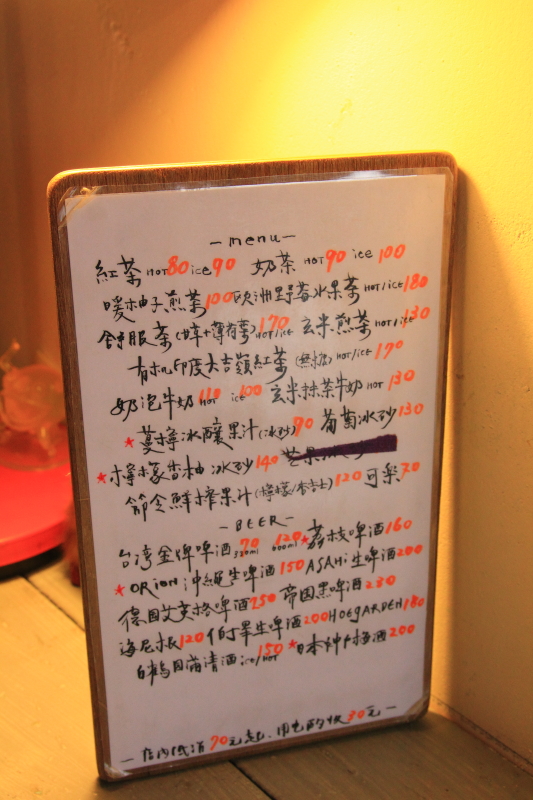 -menu-
紅茶 HOT 80 ice 90 奶茶 HOT 90 ice 100
暖柚子煎茶 100 歐洲野莓水果茶 HOT/ICE 180
舒服茶(甘草+薄荷葉) 170 HOT/ICE 玄米煎茶 HOT/ICE 130
有机印度大吉嶺紅茶 HOT/ICE 170
奶泡牛奶 110 HOT ice 100 玄米抹茶牛奶 HOT 130
★蔓檸冰釀果汁(冰砂) 90 葡萄冰砂 130
★檸檬香柚冰砂 140 芒果冰砂
節令鮮搾果汁 120 可樂 70
-BEER-
台湾金牌啤酒 70 320ml 120 600ml ★荔枝啤酒 160
★ORION沖縄生啤酒 150 ASAHi生啤酒 200
德国艾英格啤酒 250 帝国黑啤酒 230
海尼根 120 伯畢生啤酒 200 HOEGARDEN 180
白鶴清酒 ice/HOT 150 ★日本梅酒 200
-店内低消 70元起.用電酌收 30元-